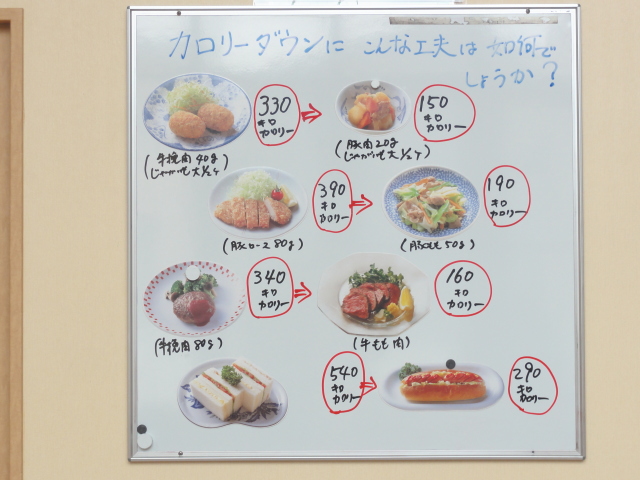 カロリーダウンに こんな工夫は 如何で
しょうか?
330
キロ
カロリー
150
キロ
カロリー
(牛挽肉40g
じゃがいも大1/2ケ)
(豚肉20g
じゃがいも大1/2ケ)
390
キロ
カロリー
190
キロ
カロリー
(豚ロース80g)
(豚もも50g)
340
キロ
カロリー
160
キロ
カロリー
(牛挽肉80g)
(牛もも肉)
540
キロ
カロリー
290
キロ
カロリー